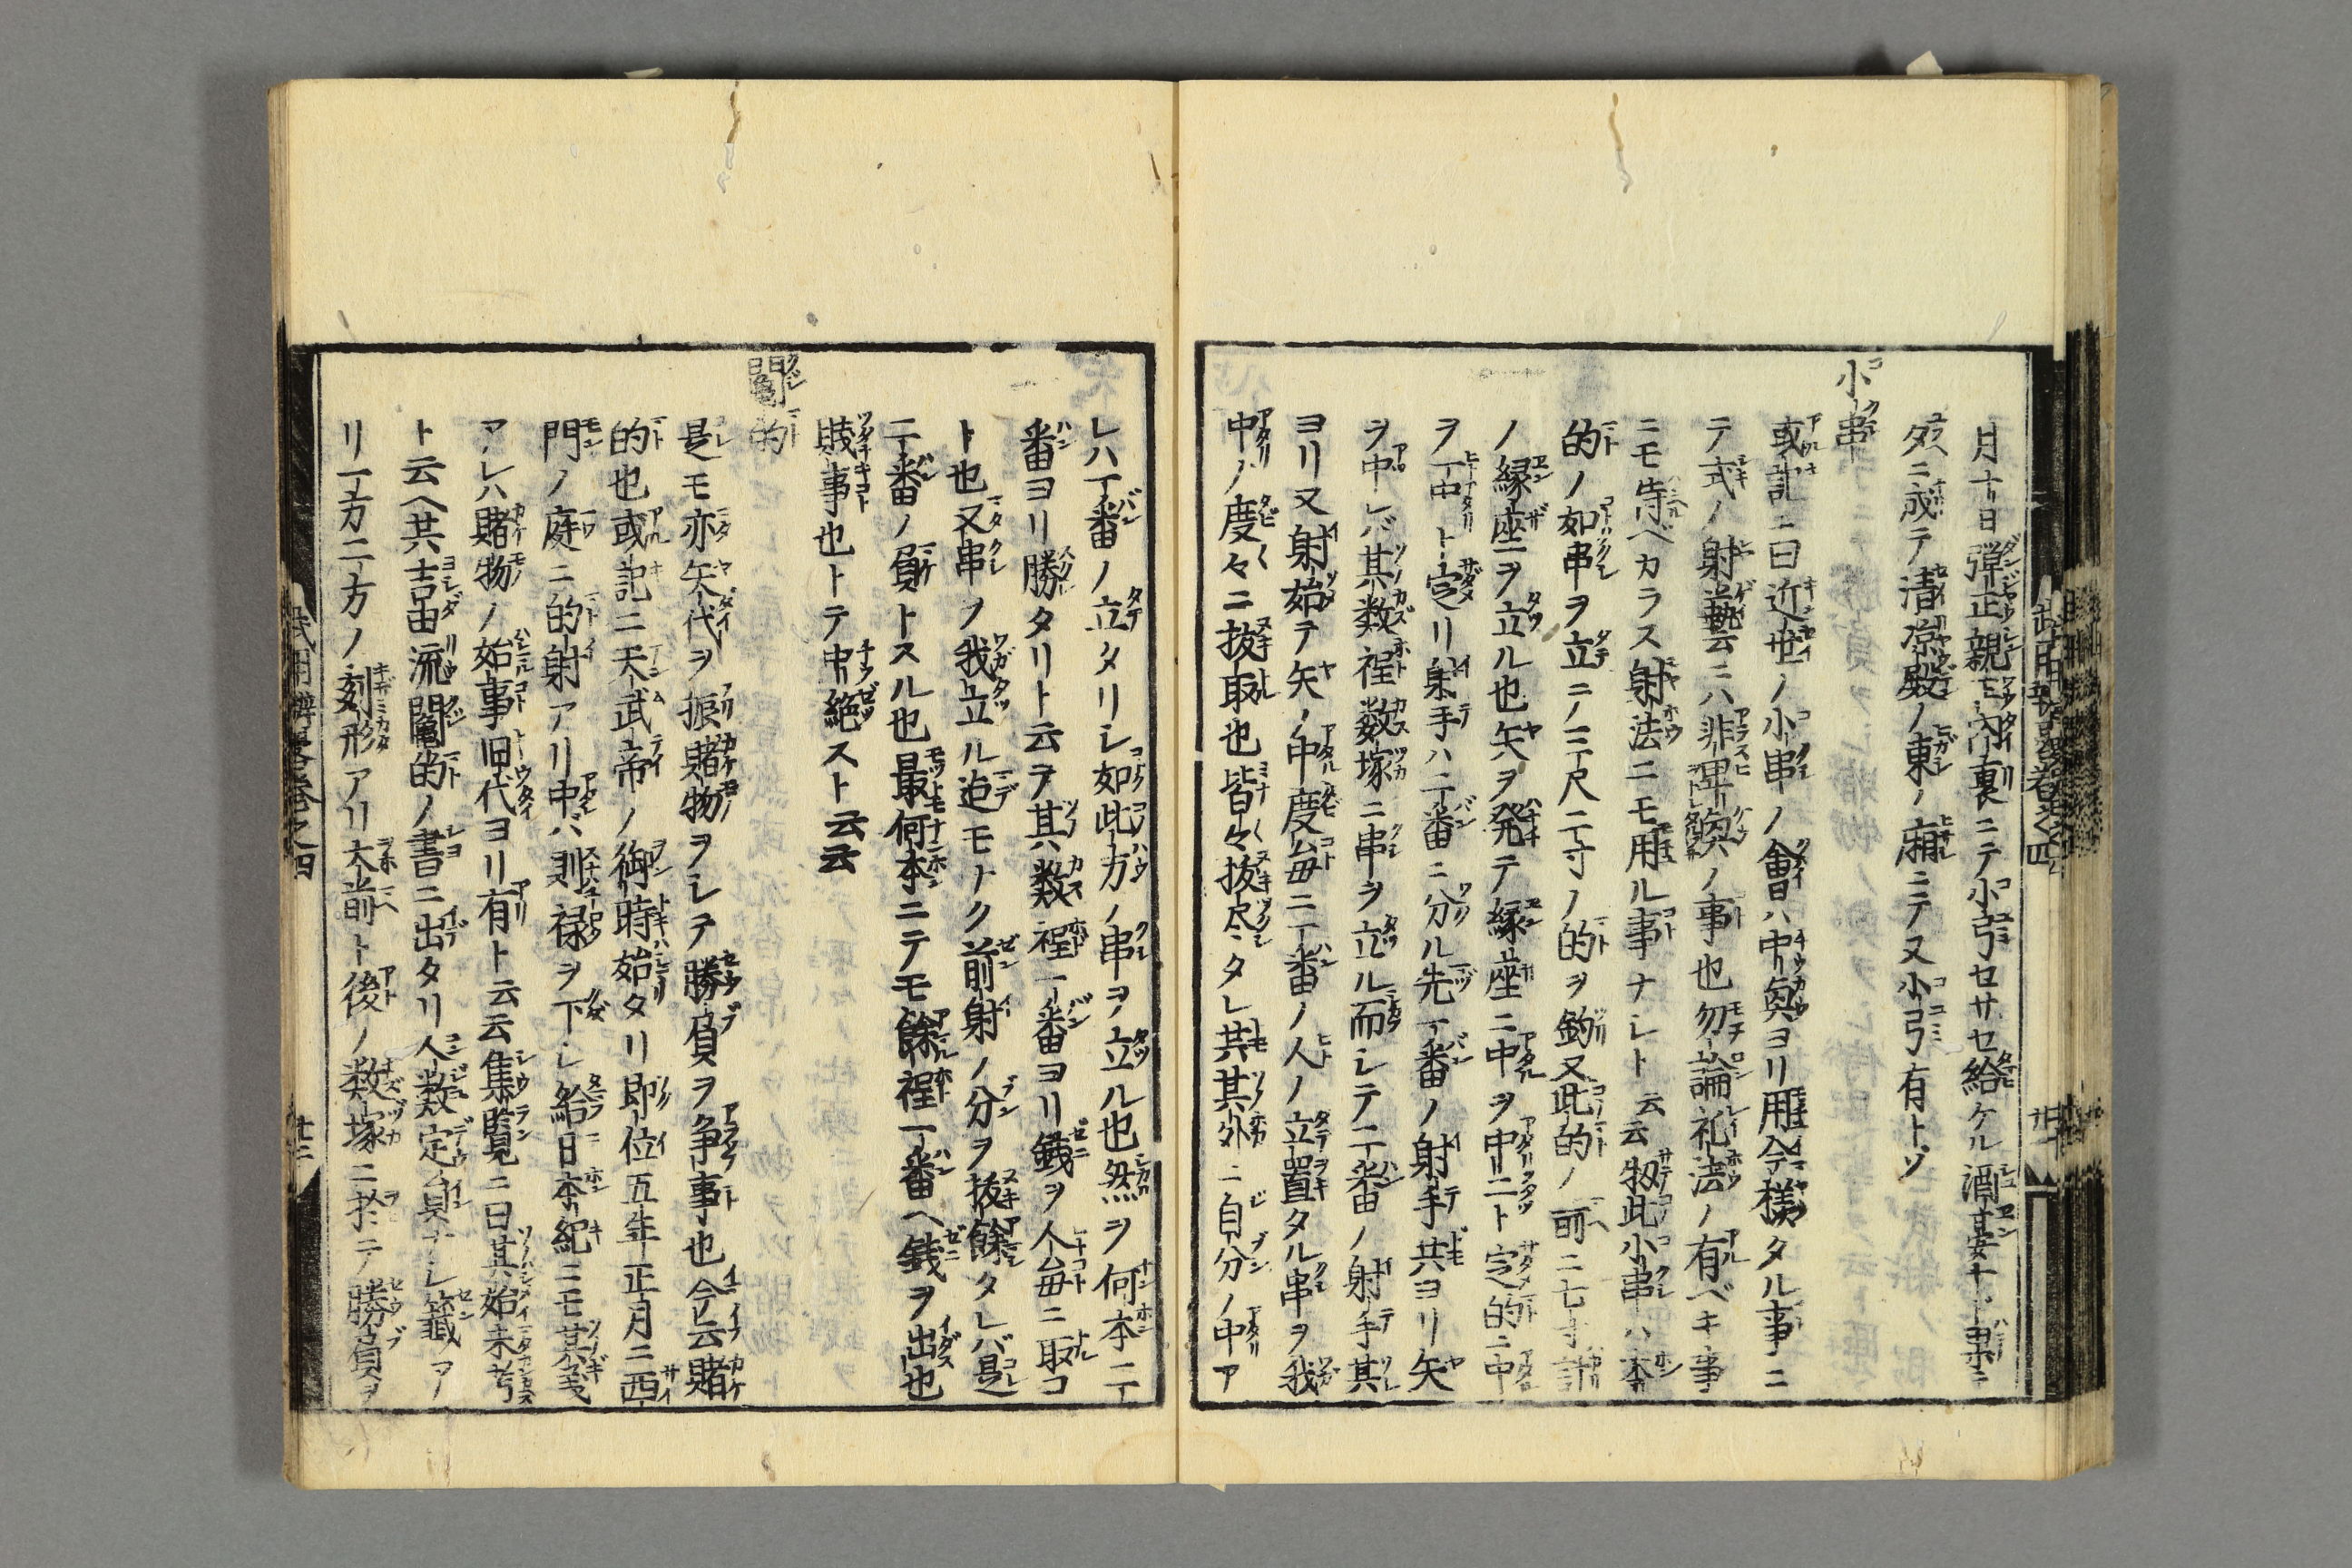 月十日弾正親王内裏ニテ小弓セサセ給ケル酒宴ナト畢ニ
夕ニ成テ清凉殿ノ東ノ廂ニテ又小弓有トソ
小串
或記ニ曰近世ノ小串ノ會ハ中奥ヨリ用今様タル事ニ
テ式ノ射藝云ニハ非卑ノ事也勿論礼法ノ有ベキ事
ニモ侍ベカラス射法ニモ用ル事ナレト云云扨此小串ハ本
的ノ如串ヲ立ニノ三尺二寸ノ的ヲ釣又此的ノ前ニ七寸
ノ縁座ヲ立ル也矢ヲ発テ縁座ニ中ヲ中リニト定的ニ中
ヲ一中ト定リ射手ハ二番ニ分ル先一番ノ射手共ヨリ矢
ヲ中レバ其数程数塚ニ串ヲ立ル而シテ二番ノ射手其
ヨリ又射始テ矢ノ中度毎ニ一番ノ人ノ立置タル串ヲ我
中ノ度々ニ抜取也皆々抜尽タレ共其外ニ自分ノ中ア
レハ一番ノ立タリシ如此方ノ串ヲ立ル也然ヲ何本ニテ
番ヨリ勝タリト云ヲ其数程一番ヨリ銭ヲ人毎ニ取コ
ト也又串ノ我立ル迄モトク前射ノ分ヲ抜餘タレバ是
二番ノ負トスル也最何本ニテモ餘程一番ヘ銭ヲ出也
賎事也トテ中絶スト云云
鬮的
是モ亦矢代ヲ振賭物ヲシテ勝負ヲ争事也今云賭
的也或記ニ天武帝ノ御時始タリ即位五年正月ニ西
門ノ庭ニ的射アリ中ハ則禄ヲ下シ給日本紀ニモ其義
アレハ賭物ノ始事旧代ヨリ有ト云云集覧ニ曰其始未考
ト云ヘ共吉田流鬮的ノ書ニ出タリ人数定員ナシ籤アノ
リ一方二方ノ刻形アリ大前ト後ノ数塚ニ於テ勝負ヲ
武用辨畧巻之四
廿二
武用辨畧巻之四
廿三